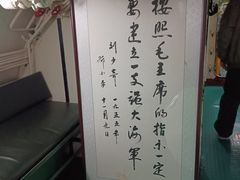 按照毛主席的指示一定
要建立一支强大海軍
刘少奇 一九五五年
邓小平 十一月九日